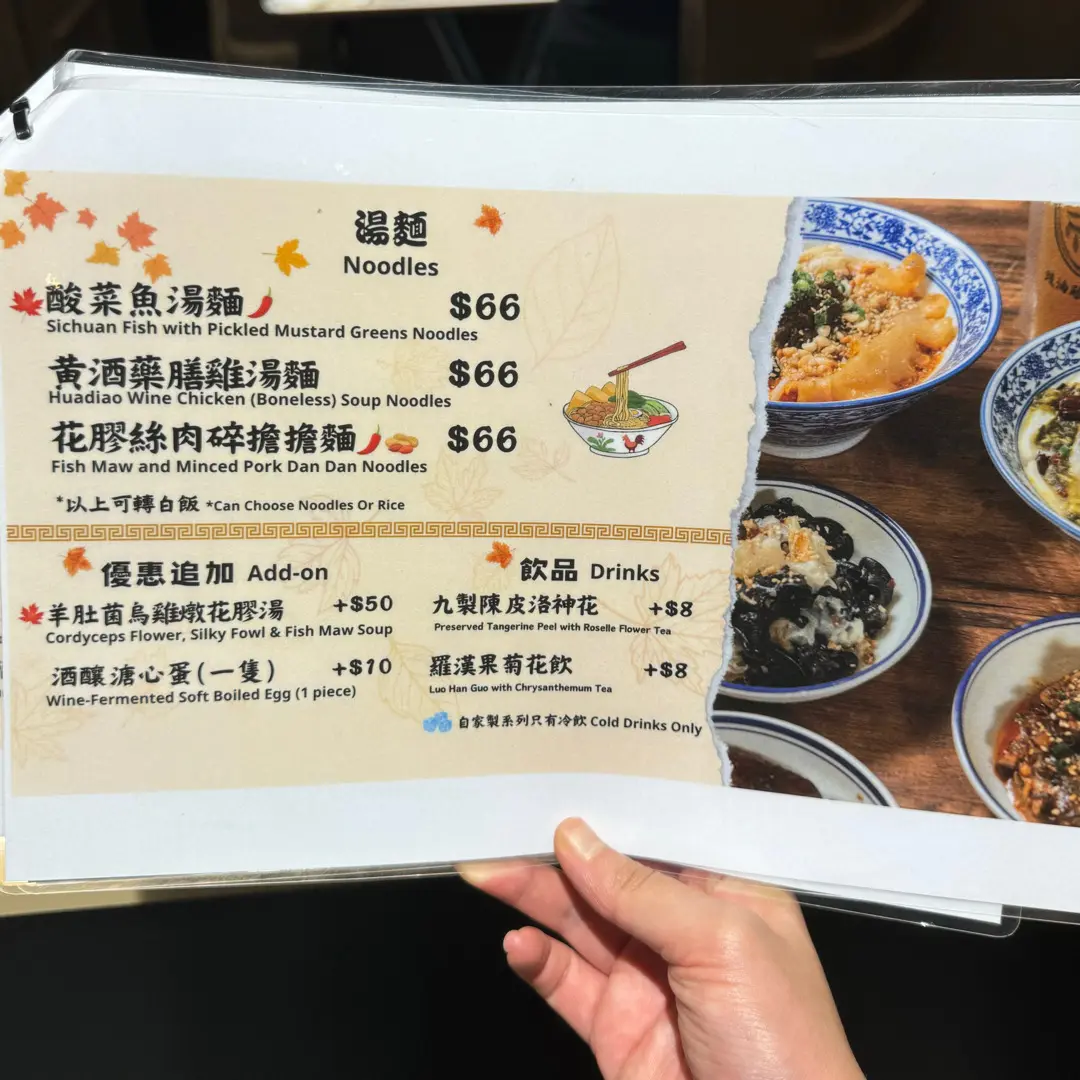 湯麵
Noodles
酸菜魚湯麵 $66
Sichuan Fish with Pickled Mustard Greens Noodles
黃酒藥膳雞湯麵 $66
Huadiao Wine Chicken (Boneless) Soup Noodles
花膠絲肉碎擔擔麵 $66
Fish Maw and Minced Pork Dan Dan Noodles
*以上可轉白飯 *Can Choose Noodles Or Rice
優惠追加 Add-on
羊肚菌烏雞燉花膠湯 +$50
Cordyceps Flower, Silky Fowl & Fish Maw Soup
酒釀溏心蛋(一隻) +$10
Wine-Fermented Soft Boiled Egg (1 piece)
飲品 Drinks
九製陳皮洛神花 +$8
Preserved Tangerine Peel with Roselle Flower Tea
羅漢果菊花飲 +$8
Luo Han Guo with Chrysanthemum Tea
自家製系列只有冷飲 Cold Drinks Only